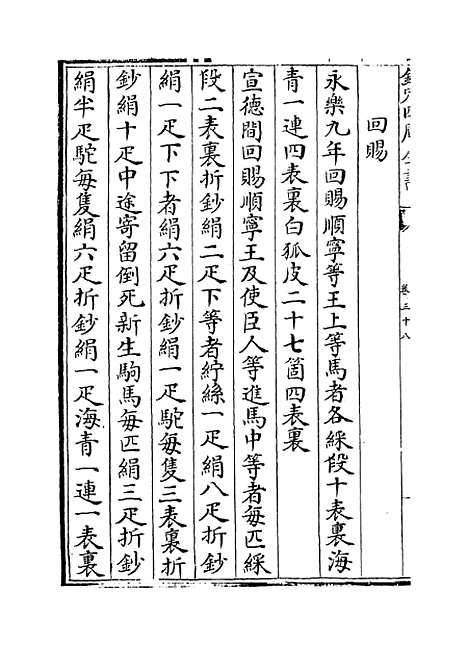 欽定四庫全書
卷三十八
回賜
永樂九年回賜順寧等王上等馬者各綵段十表裏海
青一連四表裏白狐皮二十七箇四表裏
宣德間回賜順寧王及使臣人等進馬中等者每匹綵
段二表裏折鈔絹二疋下等者紵絲一疋絹八疋折鈔
絹一疋下下者絹六疋折鈔絹一疋駝每隻三表裏折
鈔絹十疋中途寄留倒死新生駒馬每匹絹三疋折鈔
絹半疋駝每隻絹六疋折鈔絹一疋海青一連一表裏